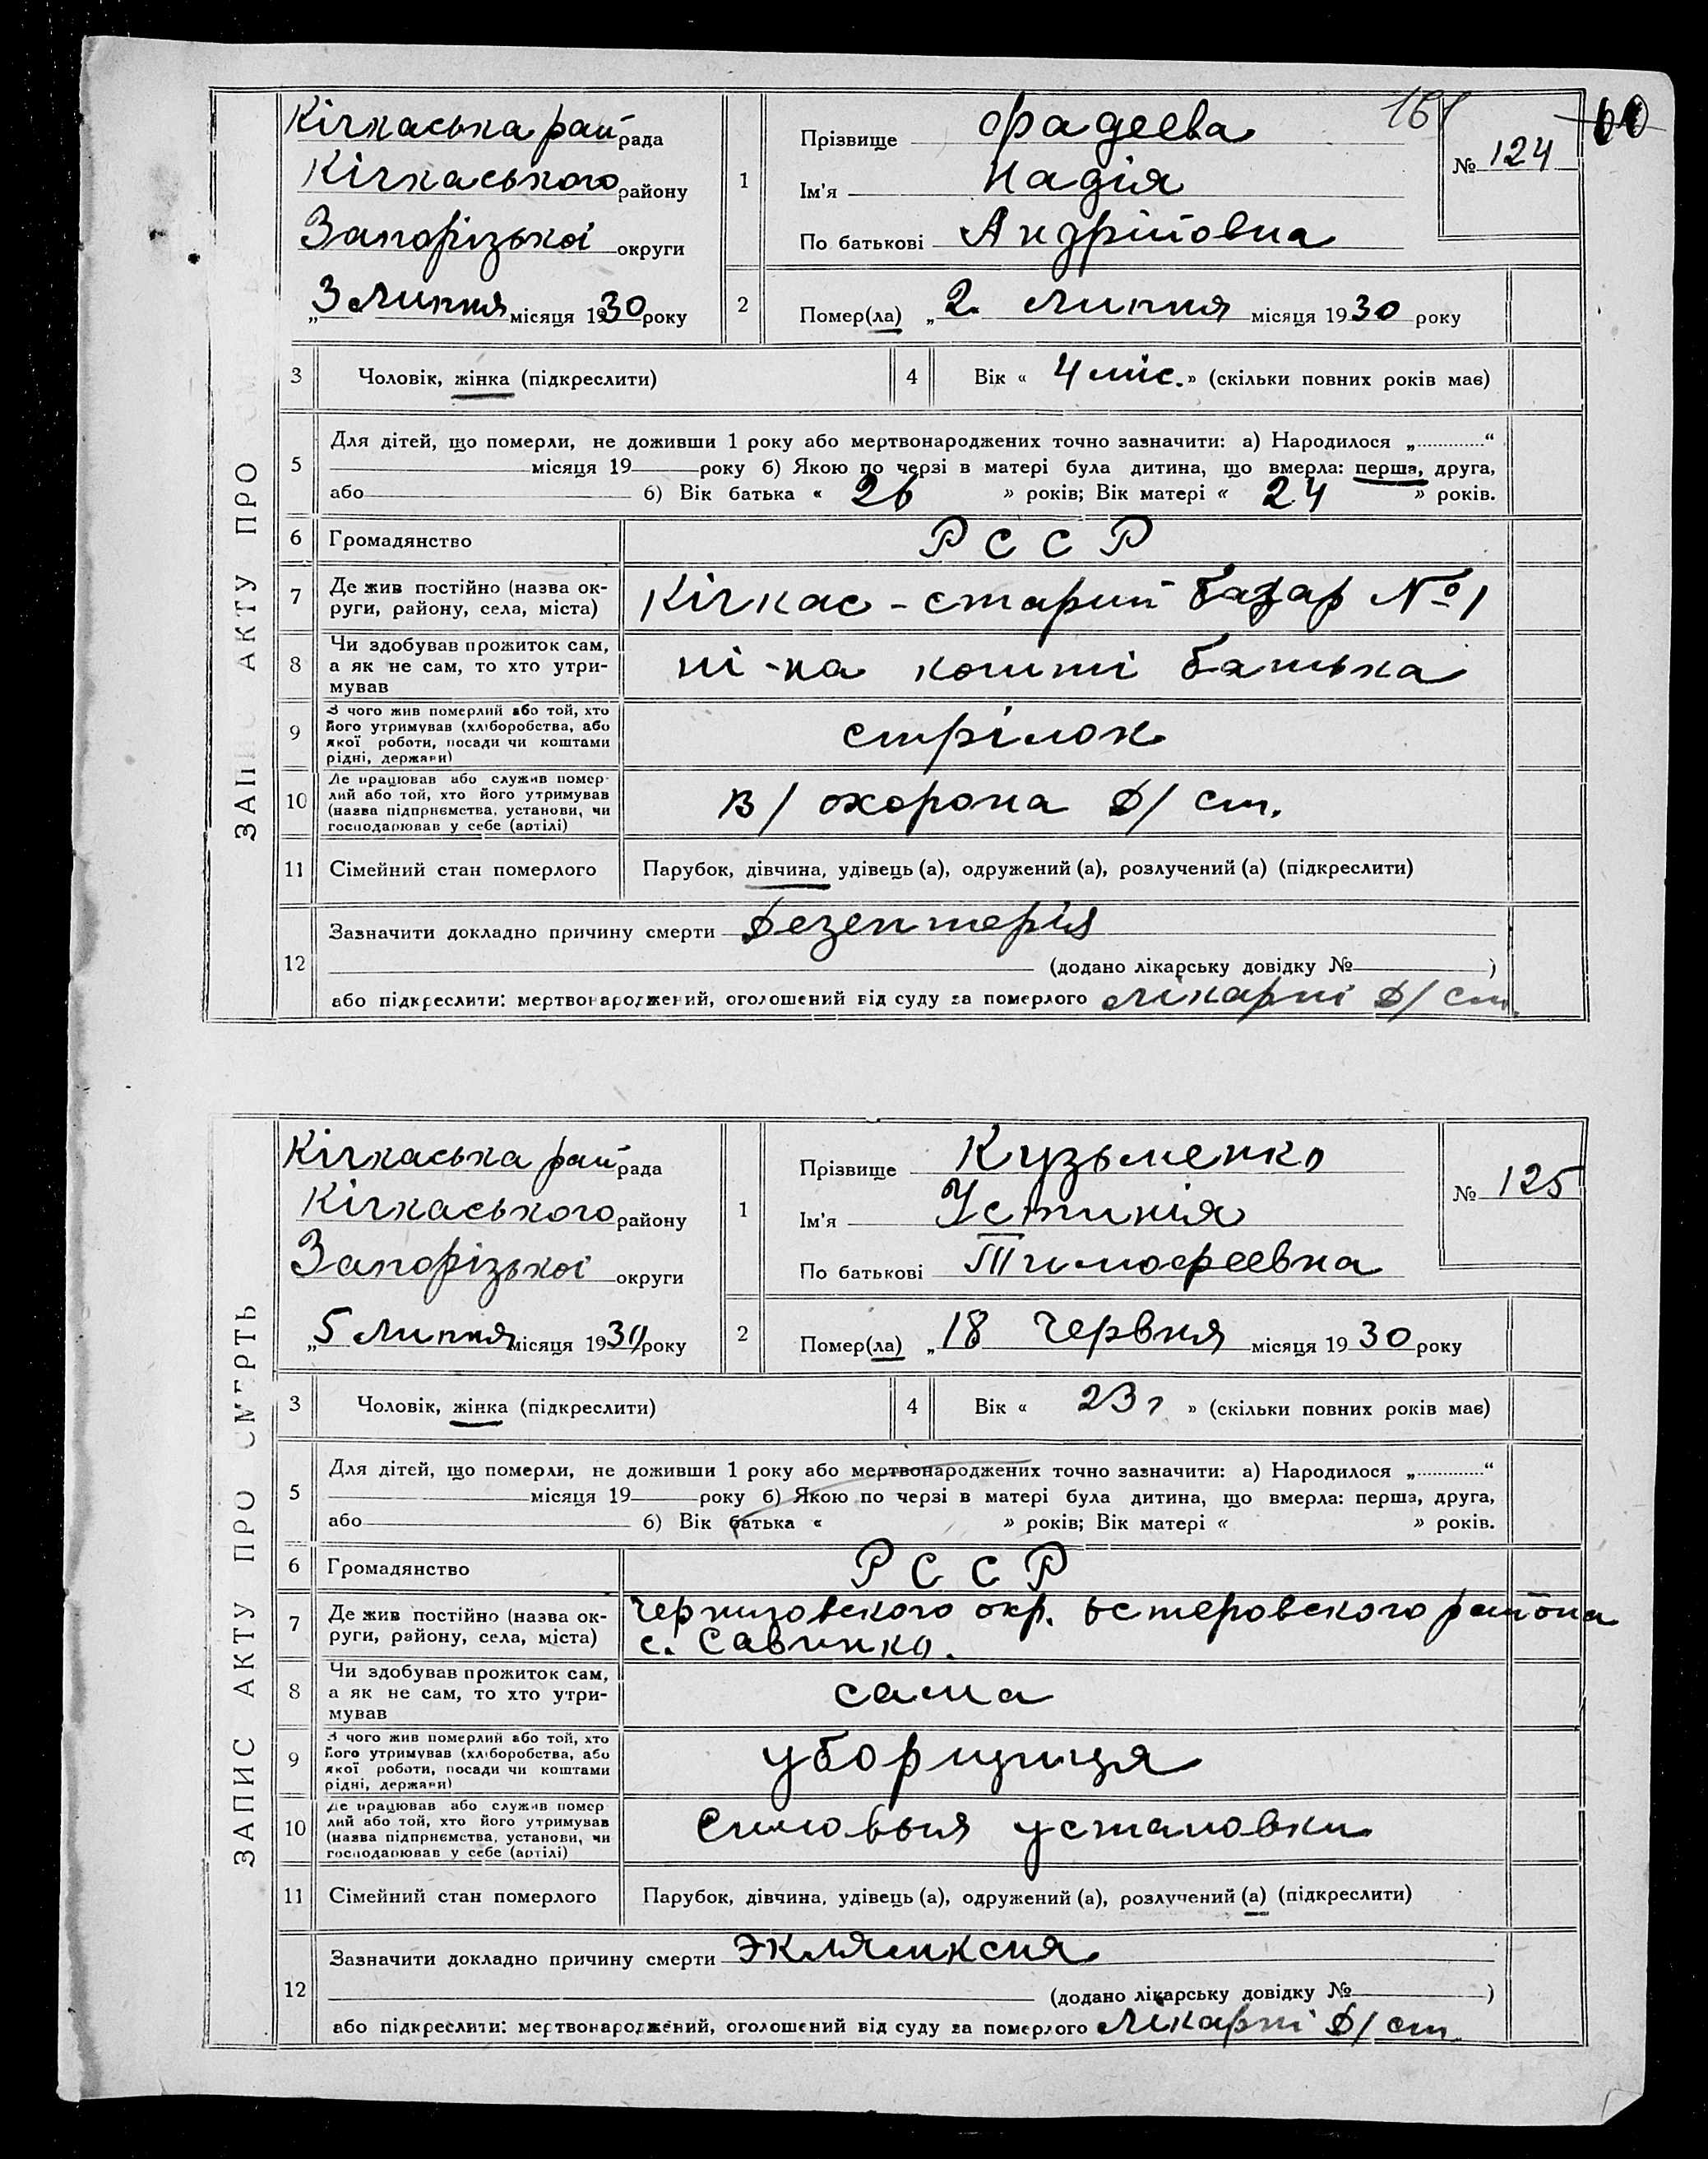 161
60
ЗАПИС АКТУ ПРО СМЕРТЬ
Кічкаська рай рада
Кічкаського району
Запорізької округи
„3 Липня місяця 1930 року
1
Прізвище Фадеева
Ім'я Надія
По батькові Андрійовна
№ 124
2
Помер(ла) „2 Липня місяця 1930 року
3 Чоловік, жінка (підкреслити)
4 Вік « 4 міс. » (скільки повних років має)
5
Для дітей, що померли, не доживши 1 року або мертвонароджених точно зазначити: а) Народилося „..............“
місяця 19 року б) Якою по черзі в матері була дитина, що вмерла: перша, друга,
або б) Вік батька « 26 » років; Вік матері « 24 » років.
6 Громадянство РССР
7 Де жив постійно (назва ок-
руги, району, села, міста)
Кічкас - старий базар №1
8 Чи здобував прожиток сам,
а як не сам, то хто утри-
мував
ні - на кошті батька
9 З чого жив померлий або той, хто
його утримував (хліборобства, або
якої роботи, посади чи коштами
рідні, держави)
стрілок
10 Де працював або служив помер-
лий або той, хто його утримував
(назва підприємства, установи, чи
господарював у себе (артілі)
В/ охорона Д/ ст.
11 Сімейний стан померлого Парубок, дівчина, удівець (а), одружений (а), розлучений (а) (підкреслити)
12
Зазначити докладно причину смерти Дезентерія
(додано лікарську довідку № )
або підкреслити: мертвонароджений, оголошений від суду за померлого Лікарні Д/ ст.
ЗАПИС АКТУ ПРО СМЕРТЬ
Кічкаська рай рада
Кічкаського району
Запорізької округи
„5 Липня місяця 1930 року
1
Прізвище Кузьменко
Ім'я Устинія
По батькові Тимофеевна
№ 125
2
Помер(ла) „18 Червня місяця 1930 року
3 Чоловік, жінка (підкреслити)
4 Вік « 23 г » (скільки повних років має)
5
Для дітей, що померли, не доживши 1 року або мертвонароджених точно зазначити: а) Народилося „..............“
місяця 19 року б) Якою по черзі в матері була дитина, що вмерла: перша, друга,
або б) Вік батька « » років; Вік матері « » років.
6 Громадянство РССР
7 Де жив постійно (назва ок-
руги, району, села, міста)
Чернизовского окр. Остеровского района
с. Савинко.
8 Чи здобував прожиток сам,
а як не сам, то хто утри-
мував
сама
9 З чого жив померлий або той, хто
його утримував (хліборобства, або
якої роботи, посади чи коштами
рідні, держави)
уборщиця
10 Де працював або служив помер-
лий або той, хто його утримував
(назва підприємства, установи, чи
господарював у себе (артілі)
Силовыя установки
11 Сімейний стан померлого Парубок, дівчина, удівець (а), одружений (а), розлучений (а) (підкреслити)
12
Зазначити докладно причину смерти Эклямксия
(додано лікарську довідку № )
або підкреслити: мертвонароджений, оголошений від суду за померлого Лікарні Д/ ст.